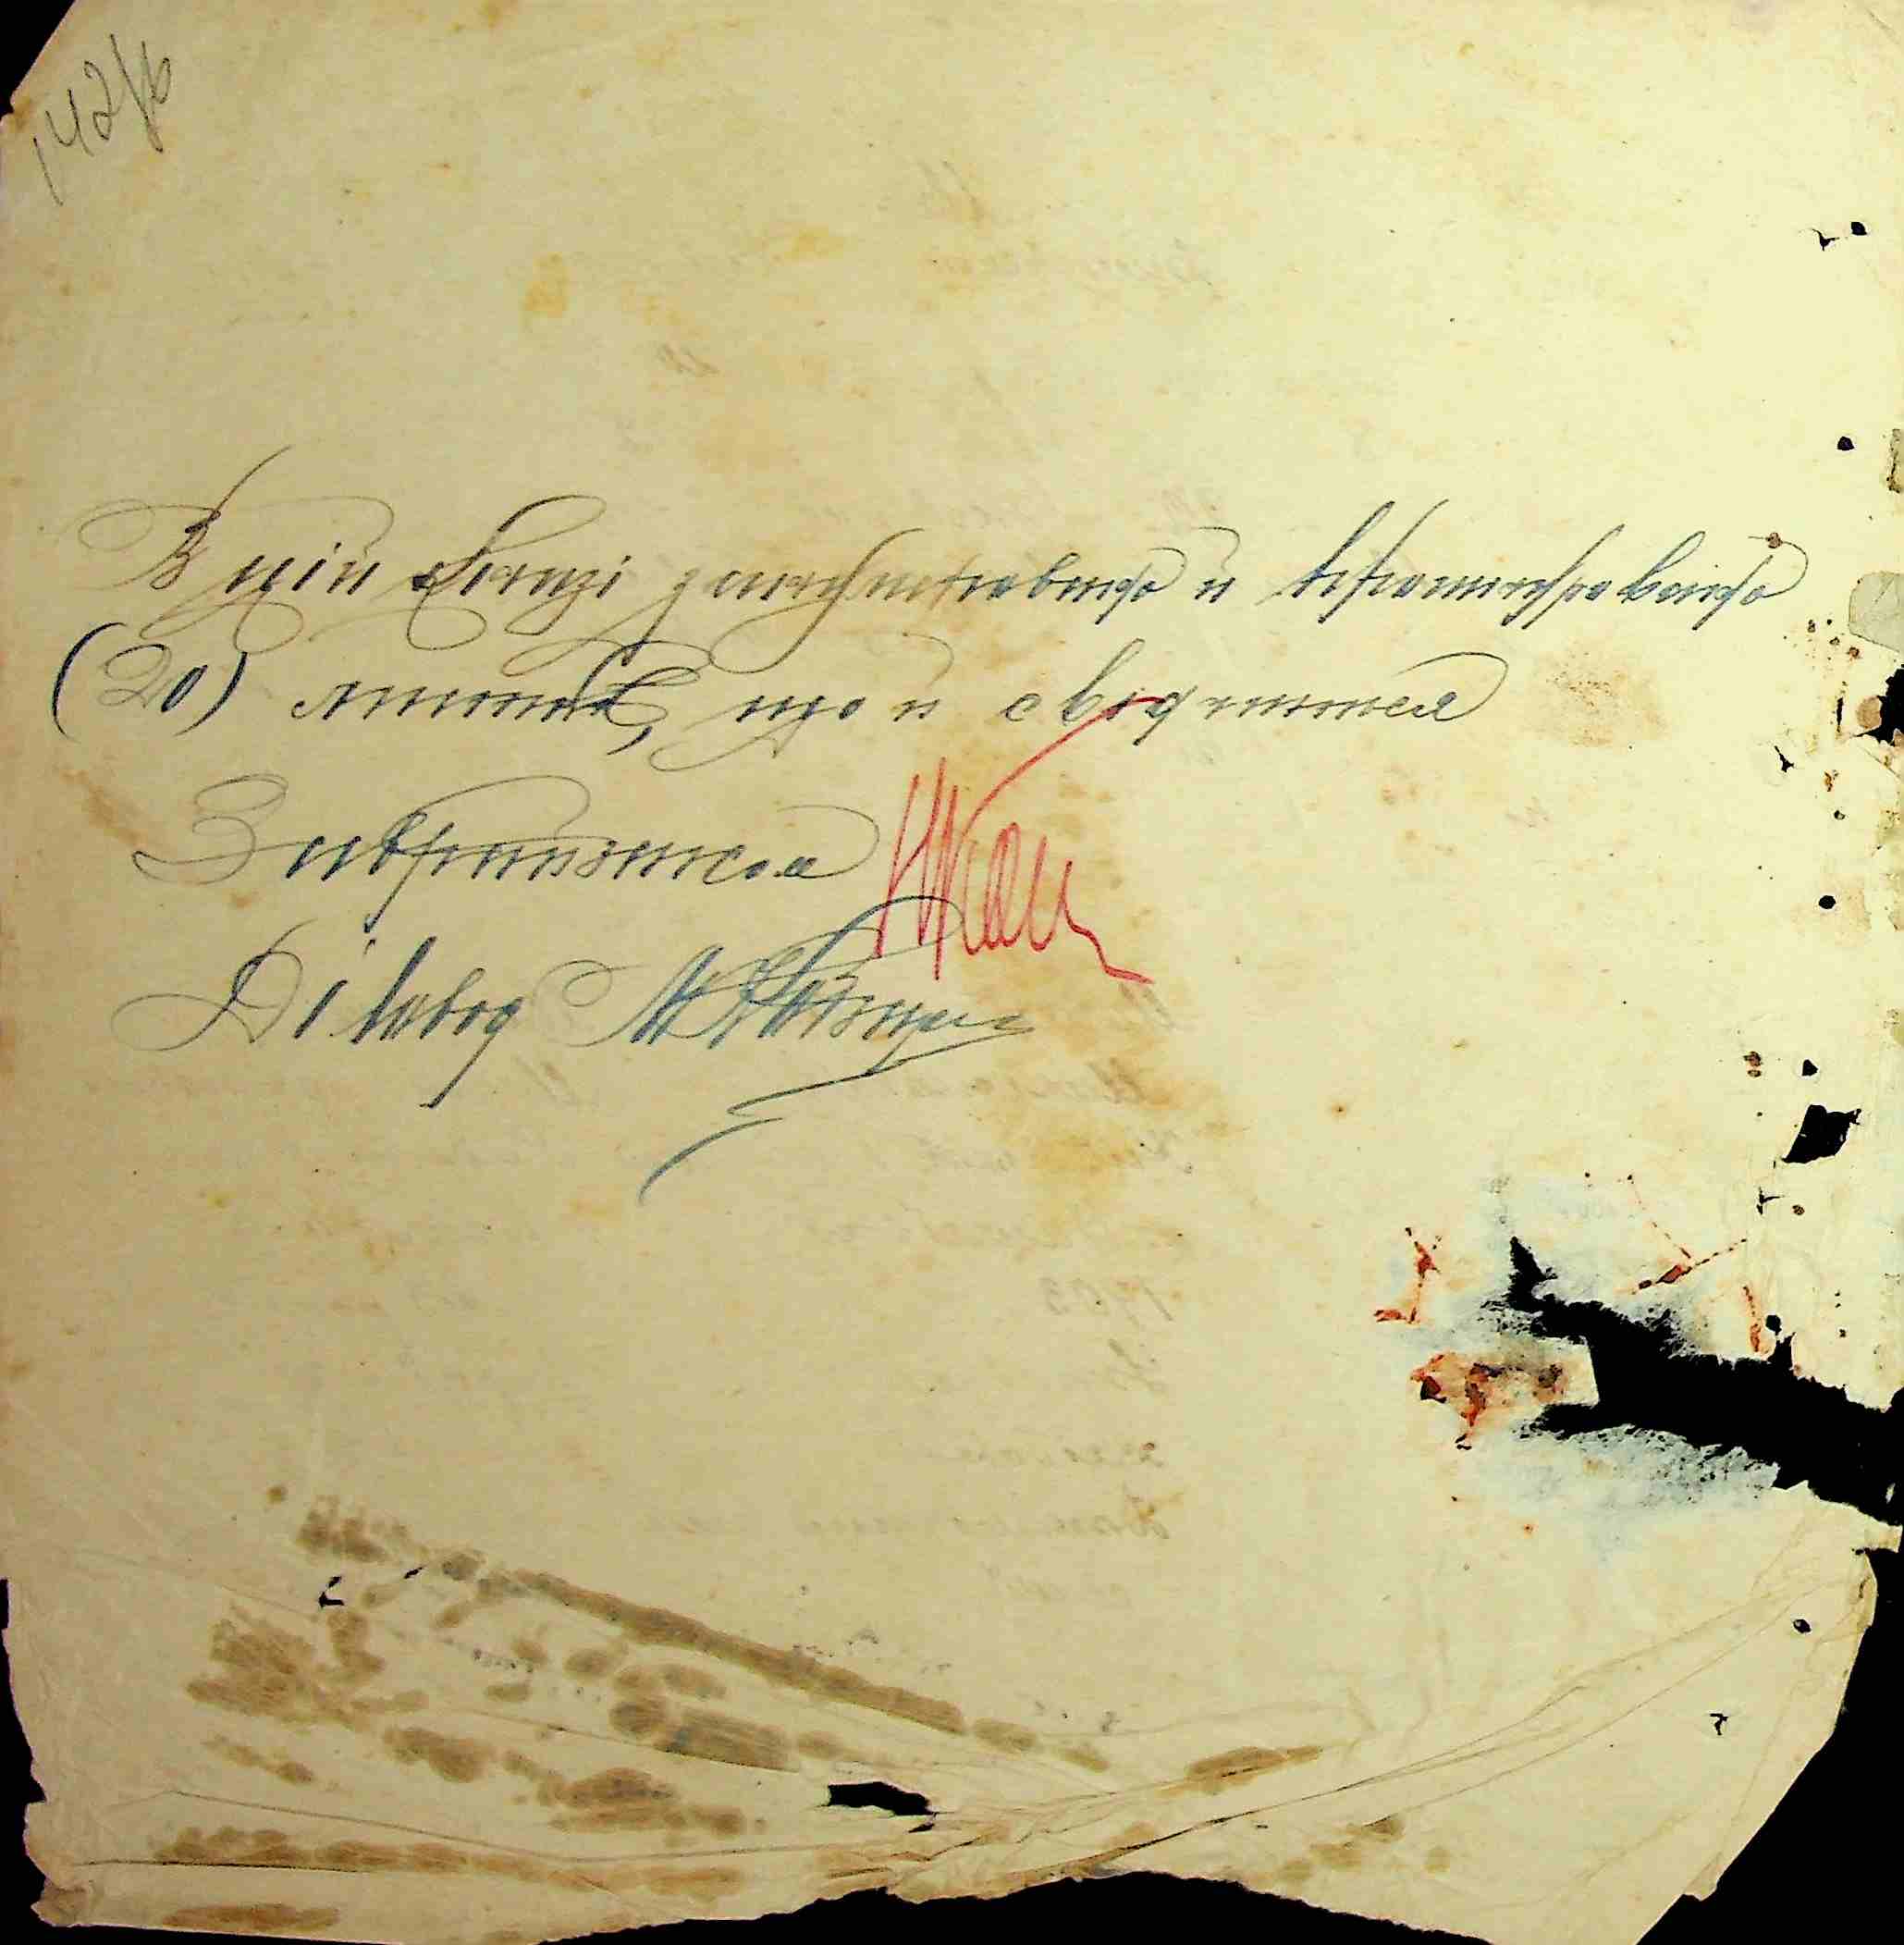 142/б
В цій книзі занумеровано й прошнуровано
(20) листів, що й свідчиться
Завзагсом
Діловод